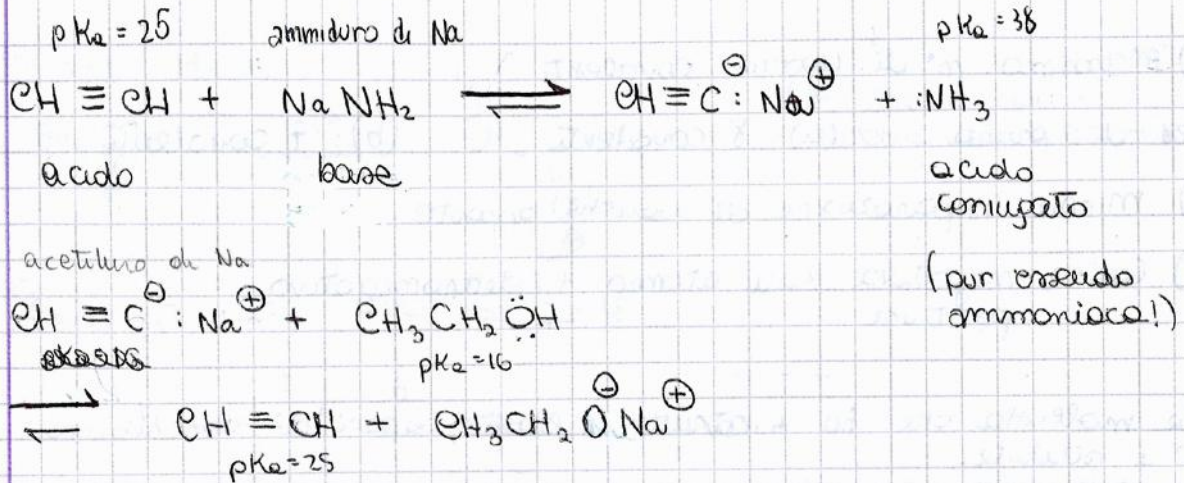 pKa = 25 ammiduro di Na pKa = 38
CH ≡ CH + Na NH₂ ⇌ CH ≡ C⊖ : Na⊕ + :NH₃
acido base acido
coniugato
(pur essendo
ammoniaca!)
acetiluro di Na
CH ≡ C⊖ : Na⊕ + CH₃ CH₂ ÖH
pKa = 16
⇌ CH ≡ CH + CH₃CH₂ O⊖ Na⊕
pKa = 25